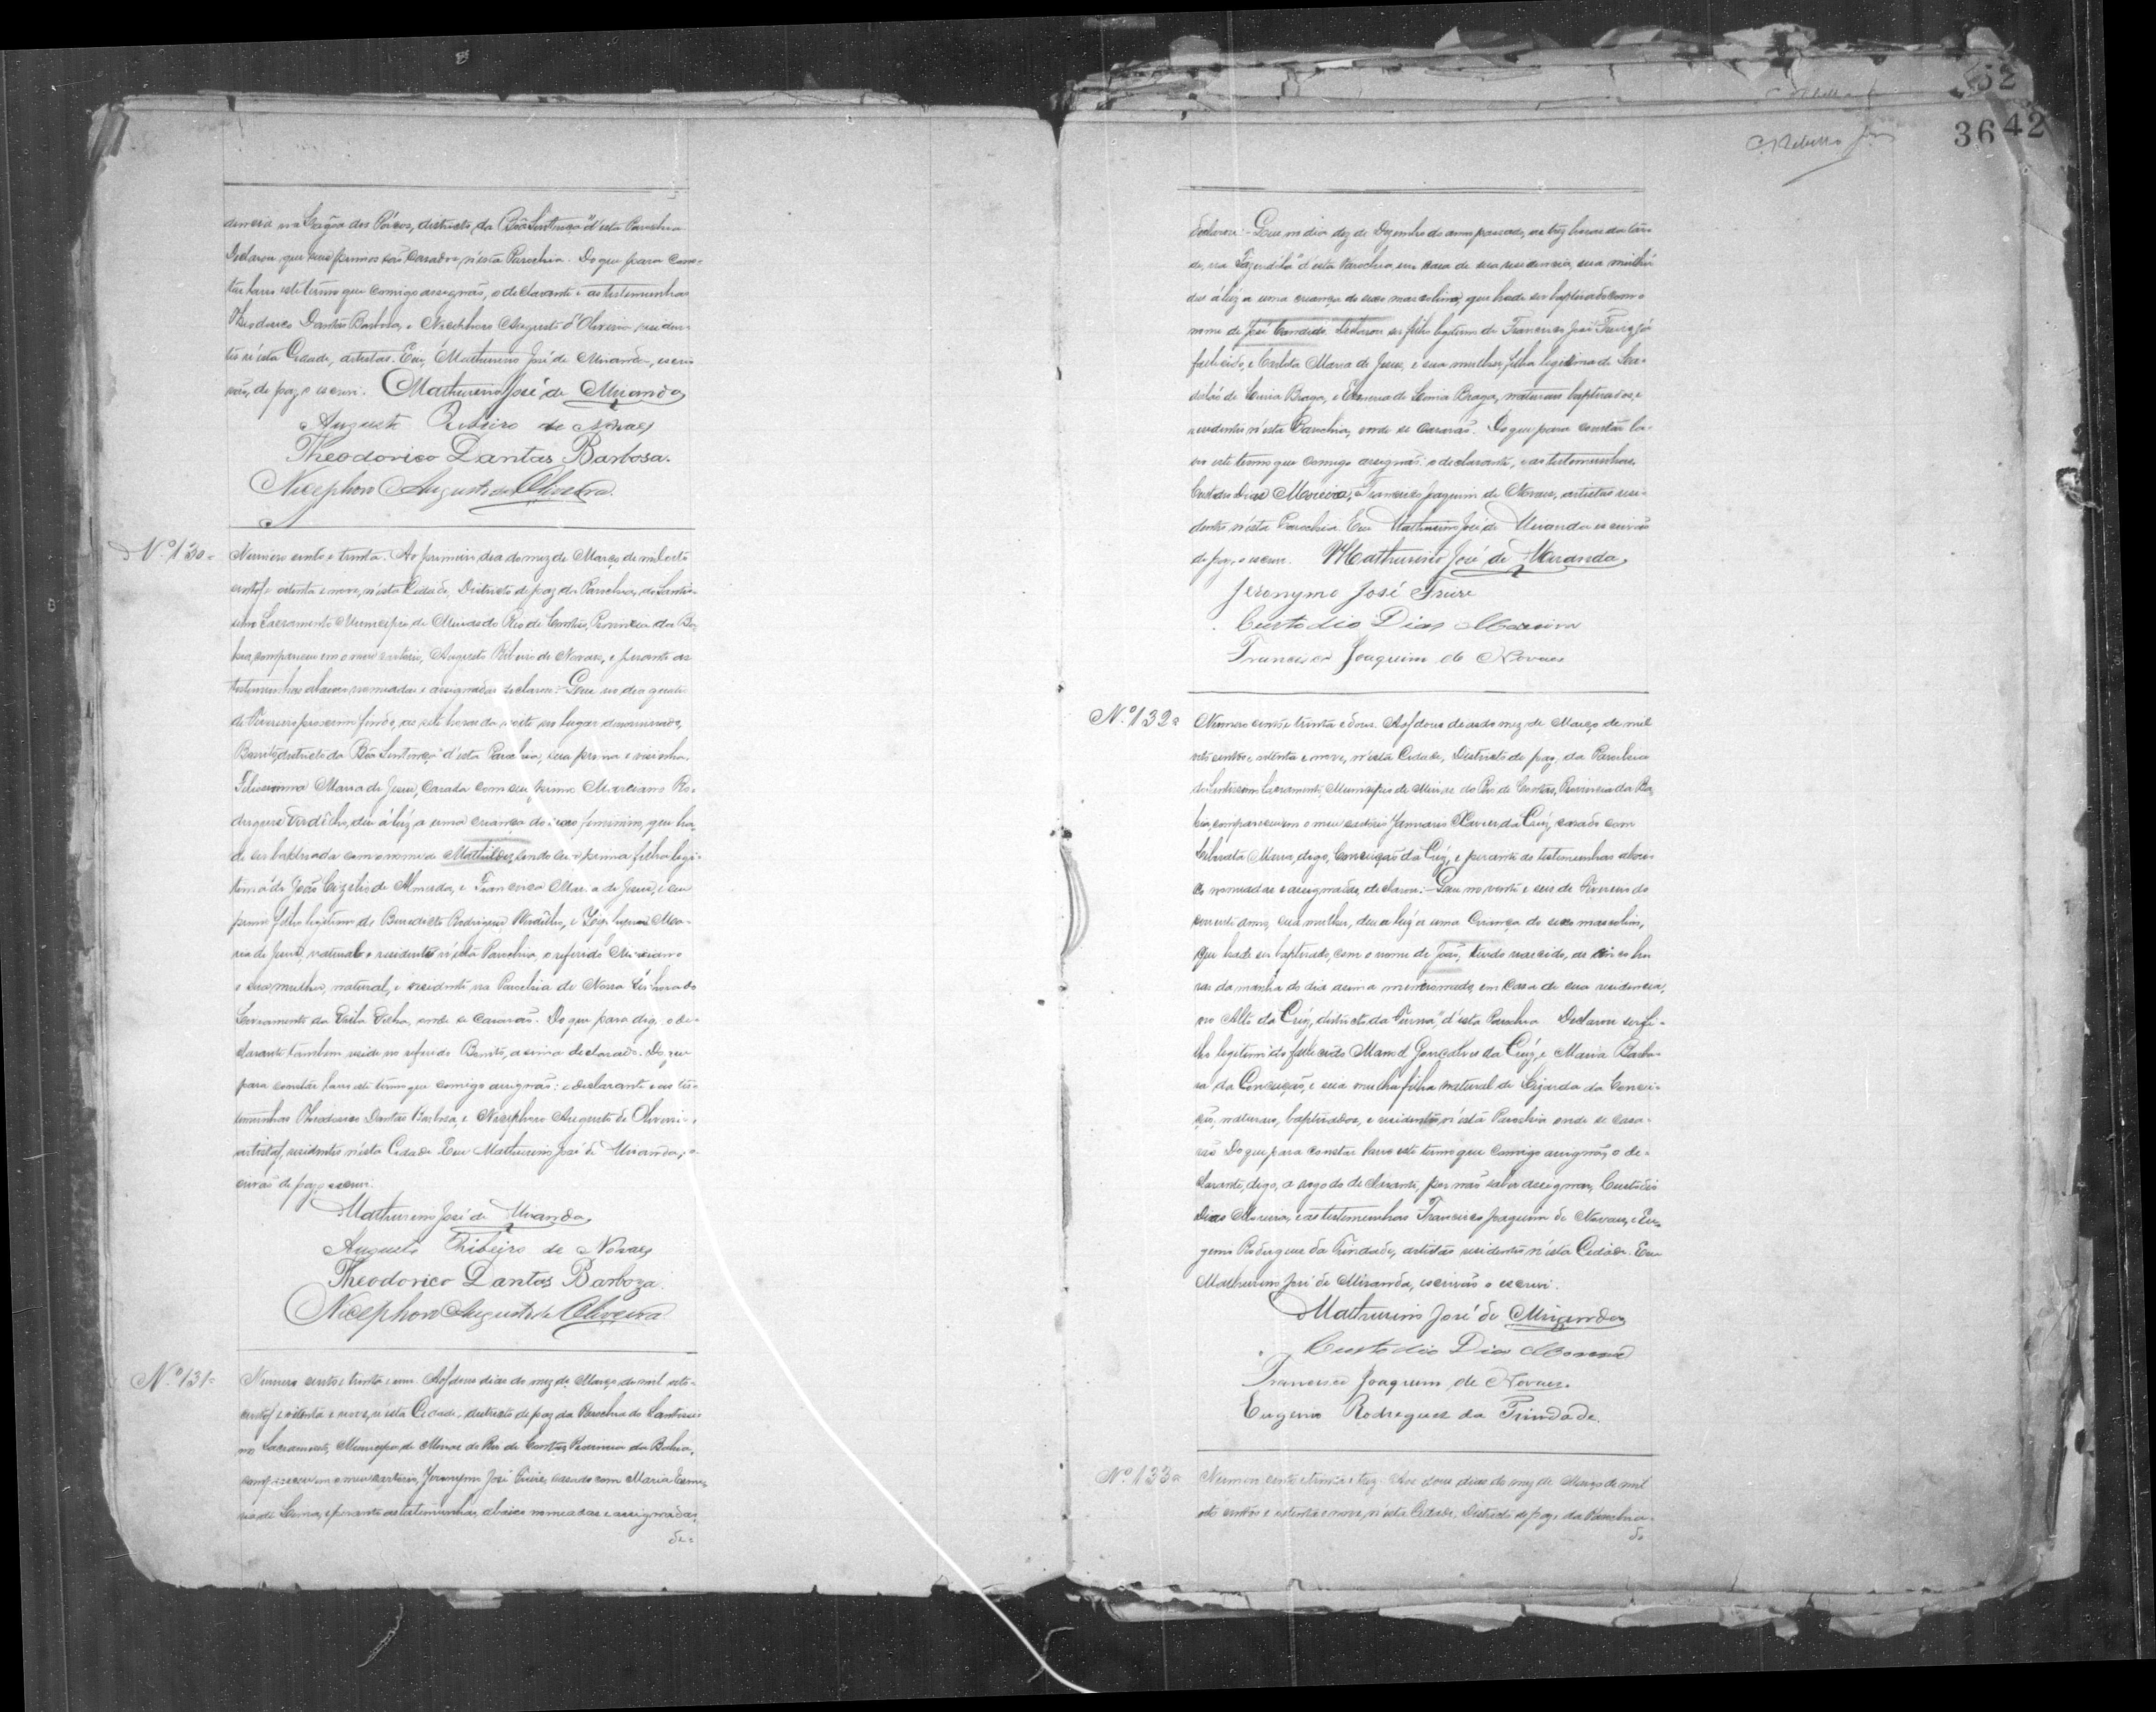 dencia na Lagôa dos Pórcos, districto da "Bôa Sentença" d'esta Parochia
Declarou que seus primos são casados n'esta Parochia. Do que para cons-
tar lavro este termo que comigo assignão, o declarante e as testemunhas
Theodorico Dantas Barbosa, e Nicephoro Augusto d'Oliveira residen-
tes n'esta Cidade, artistas. Eu, Mathurino José de Miranda, escri-
vão de paz o escrevi. Mathurino José de Miranda
Augusto Ribeiro de Novaes
Theodorico Dantas Barbosa.
Nicephoro Augusto de Oliveira.
Nº 130= Numero cento e trinta. Ao primeiro dia do mez de Março de mil oito
centos e oitenta e nove, n'esta Cidade, Districto de paz da Parochia do Santis-
simo Sacramento Municipio de Minas do Rio de Contas, Provincia da Ba-
hia, compareceu em o meu cartorio, Augusto Ribeiro de Novaes, e perante as
testemunhas abaixo nomeadas e assignadas declarou: - Que no dia quatro
de Fevereiro proximo findo, as sete horas da noite no lugar denominado,
Bonito, districto da "Bôa Sentença" d'esta Parochia, sua prima e visinha,
Felicissima Maria de Jesus, casada com seu primo Marciano Ro-
drigues Virdilho, deu á lúz a uma criança do sexo feminino, que ha-
de ser baptisada com o nome de Mathildes, sendo sua prima filha legi-
tima de João de Almeida, e Francisca Maria de Jesus, e seu
primo filho legitimo de Benedicto Rodrigues Virdilho, e Ma-
ria de Jesus, naturales e residentes n'esta Parochia, o referido Marciano
e sua mulher, natural, e residente na Parochia de Nossa Senhora do
Livramento da Villa Velha, onde se casarão. Do que para digo, o de-
clarante tambem reside no referido Bonito, acima declarado. Do que
para constar lavro este termo que comigo assignão: o declarante e as tes-
temunhas Theodorico Dantas Barbosa, e Nicephoro Augusto de Oliveira,
artistas, residentes n'esta Cidade. Eu Mathurino José de Miranda, es-
crivão de paz o escrevi.
Mathurino José de Miranda
Augusto Ribeiro de Novaes
Theodorico Dantas Barboza.
Nicephoro Augusto de Oliveira
Nº 131= Numero cento e trinta e um. Aos dous dias do mez de Março de mil oito-
centos e oitenta e nove, n'esta Cidade, districto de paz da Parochia do Santissi-
mo Sacramento, Municipio de Minas do Rio de Contas, Provincia da Bahia,
compareceu em o meu cartorio, Jeronymo José Freire, casado com Maria
de Lima, e perante as testemunhas abaixo nomeadas e assignadas,
de=
62
36 42
C. Rebello
declarou: - Que no dia dez de Dezembro do anno passado, as trez horas da tar-
de, na "Fazendola" d'esta Parochia, em casa de sua residencia, sua mulher
deu á lúz a uma criança do sexo masculino, que hade ser baptisado com o
nome de José Candido. Declarou ser filho legitimo de Francisco José Freire já
fallecido, e Carlota Maria de Jesus, e sua mulher, filha legitima de
de Braga, e de Braga, naturaes baptisados, e
residentes n'esta Parochia, onde se casarão. Do que para constar la-
vro este termo que comigo assignão: o declarante, e as testemunhas,
Custodio Dias Moreira, e Francisco Joaquim de Novaes, artistas resi-
dentes n'esta Parochia. Eu Mathurino José de Miranda escrivão
de paz, o escrevi. Mathurino José de Miranda
Jeronymo José Freire
Custodio Dias Moreira
Francisco Joaquim de Novaes
Nº 132= Numero cento e trinta e dous. Aos dous dias do mez de Março de mil
oito centos e oitenta e nove, n'esta Cidade, Districto de paz, da Parochia
do Santissimo Sacramento, Municipio de Minas do Rio de Contas, Provincia da Ba-
hia, compareceu em o meu cartorio Januario Xavier da Crúz, casado com
Liberata Maria, digo, Conceição da Crúz, e perante as testemunhas abai-
xo nomeadas e assignadas, declarou: - Que no vinte e seis de Fevereiro do
corrente anno, sua mulher, deu a luz a uma Criança do sexo masculino,
que hade ser baptisado, com o nome de João, tendo nascido, as cinco ho-
ras da manhã do dia acima mencionado, em casa de sua residencia,
no Alto da Crúz, districto da "Furna", d'esta Parochia. Declarou ser fi-
lho legitimo do fallecido Manoel Gonçalves da Crúz, e Maria Barbo-
sa da Conceição, e sua mulher filha natural de da Concei-
ção, naturaes, baptisados, e residentes n'esta Parochia onde se casa-
rão. Do que para constar lavro este termo que comigo assignão, o de-
clarante, digo, a rogo do declarante, por não saber assignar, Custodio
Dias Moreira, e as testemunhas Francisco Joaquim de Novaes, e Eu-
genio Rodrigues da Trindade, artistas residentes n'esta Cidade. Eu
Mathurino José de Miranda, escrivão o escrevi.
Mathurino José de Miranda
Custodio Dias Moreira
Francisco Joaquim de Novaes.
Eugenio Rodrigues da Trindade.
Nº 133= Numero cento e trinta e trez. Aos dous dias do mez de Março de mil
oito centos e oitenta e nove, n'esta Cidade, Districto de paz, da Parochia
do